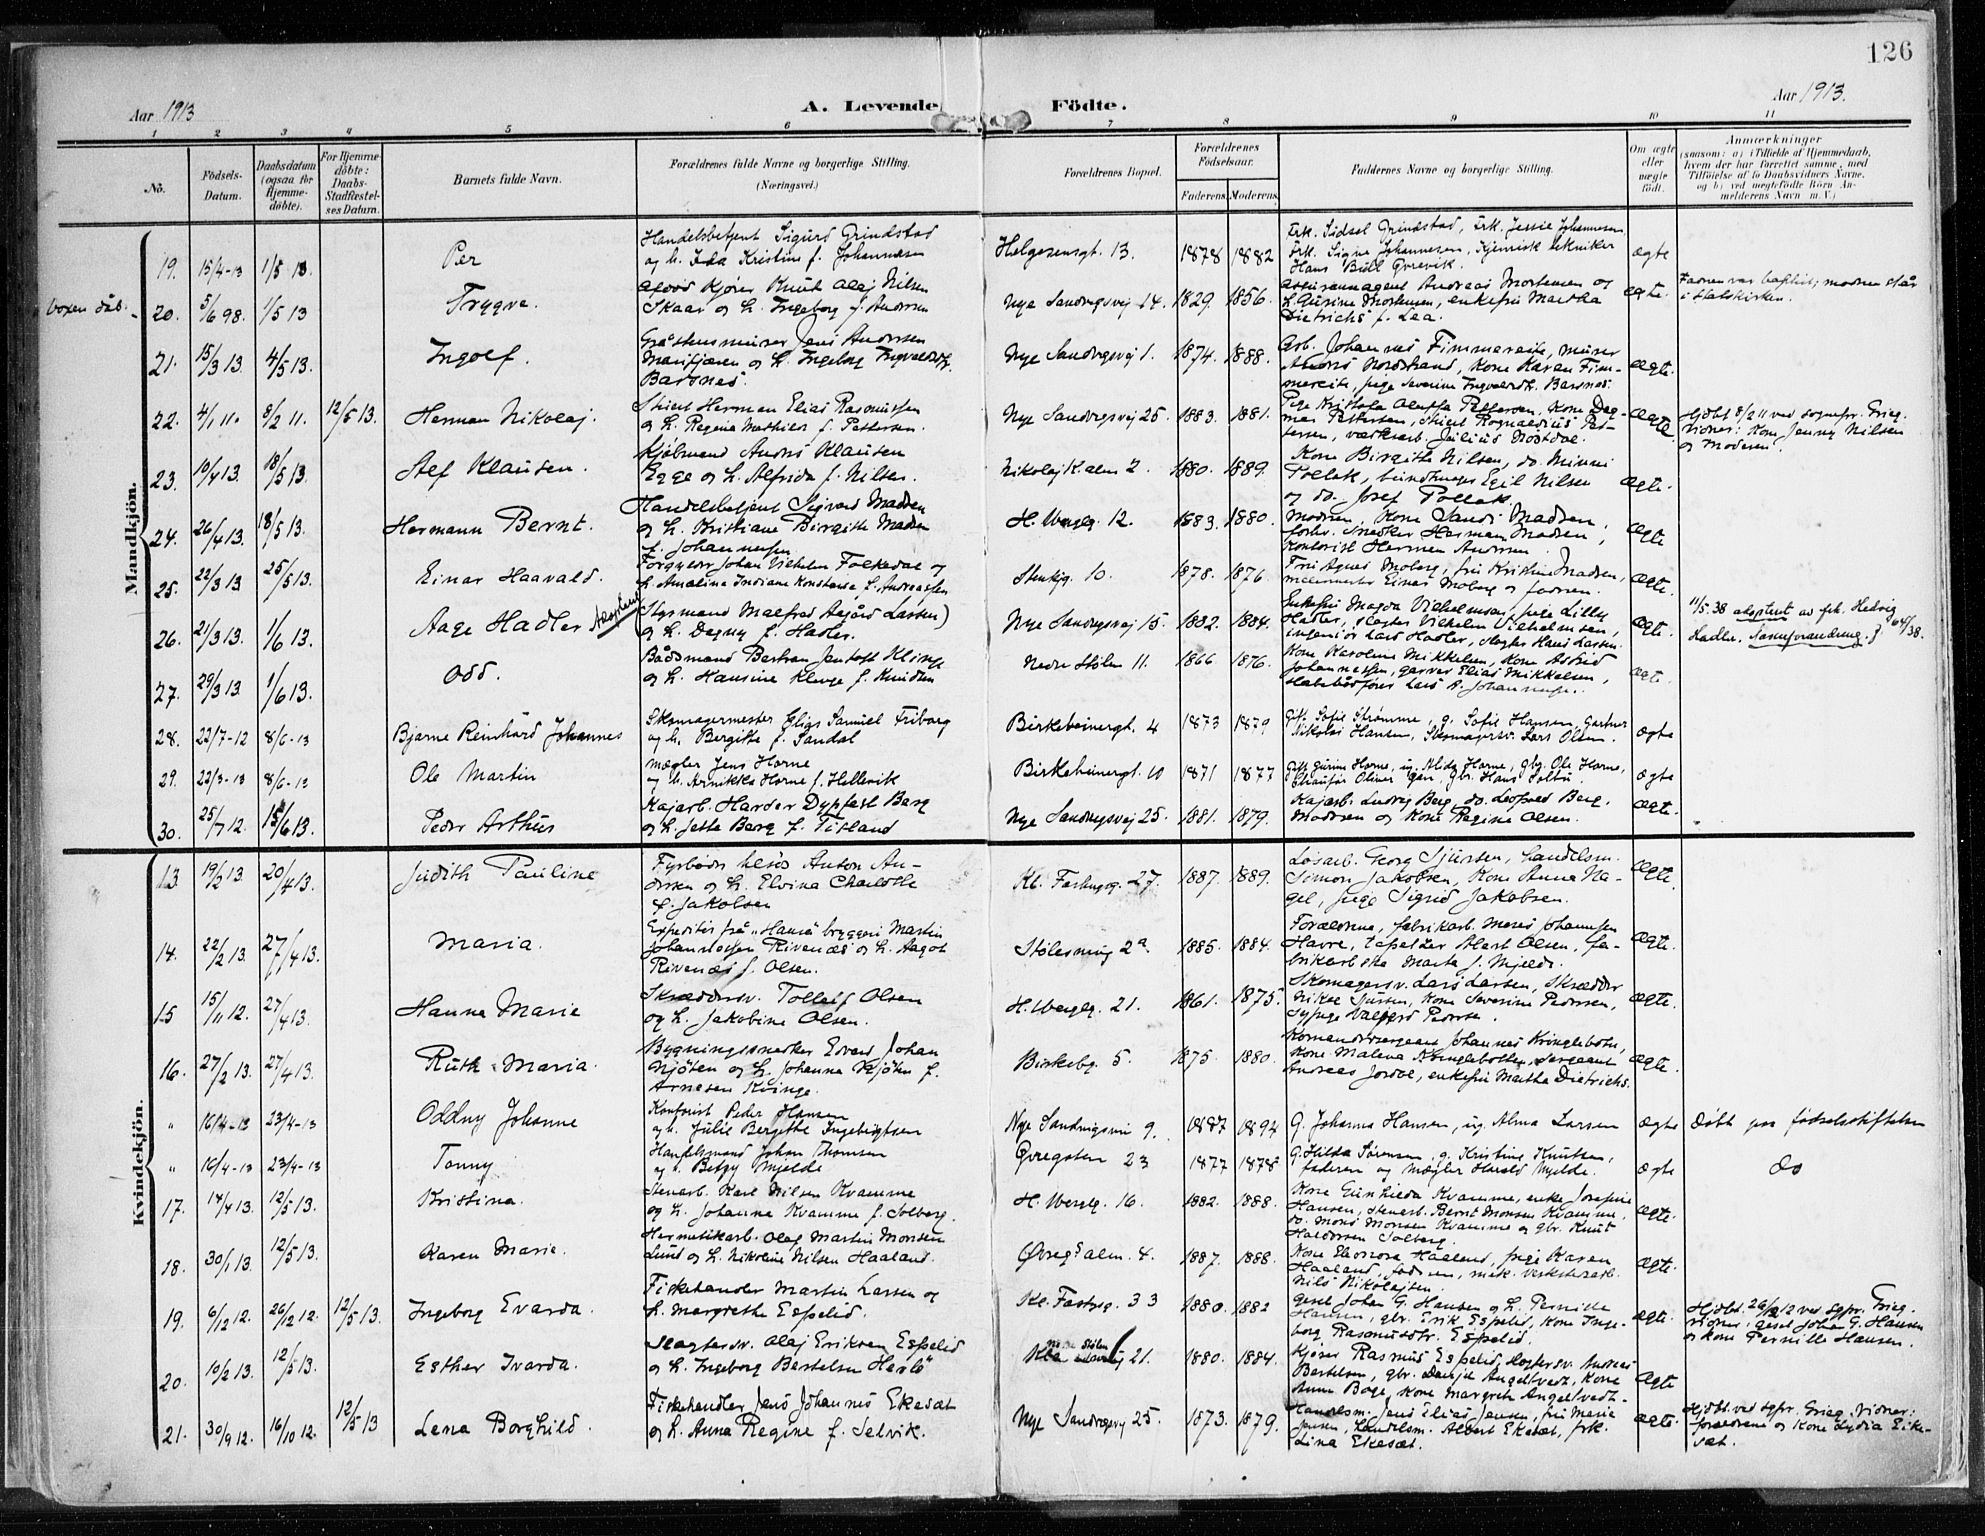 126
Aar 1913
A. Levende Födte.
Aar 1913.
1 2 3 4 5 6 7 8 9 10 11
No.
Födsels-Datum.
Daabsdatum (ogsaa for Hjemme-döbte).
For Hjemme-döbte: Daabs-Stadfæstel-ses Datum.
Barnets fulde Navn.
Forældrenes fulde Navne og borgerlige Stilling.
(Næringsvei.)
Forældrenes Bopæl.
Forældrenes Födselsaar.
Faderens. Moderens.
Faddernes Navne og borgerlige Stilling.
Om ægte eller uægte födt.
Anmærkninger
(saasom: a) i Tilfælde af Hjemmedaab, hvem der har forrettet samme, med Tilföielse af to Daabsvidners Navne, og b) ved uægtefödte Börn An-melderens Navn m. V.)
Mandkjön.
19. 15/4-13 1/5 13. Per
Handelsbetjent Sigurd Grindstad
og h. Ida Kristine f. Johannesen
Helgesensgt. 13. 1878 1882
Frk. Sidsel Grindstad, Frk. Jessie Johannesen
Frk. Signe Johannesen, Kjemisk tekniker
Hans Bull Øvrevik.
ægte
voxen dåb.
20. 5/6 98. 1/5 13 Trygve.
Kjører Knut Olaj Nilsen
Skaar og h. Ingeborg f. Andersen
Nye Sandvigsvej 14. 1829. 1856.
Assuranceagent Andreas Mortensen og
h. Gurine Mortensen, enkefru Martha
Dietrichs f. Lea.
ægte.
Faderen var baptist; moderen står
i statskirken.
21. 15/3 13. 4/5 13. Ingolf.
Gråstensmurer Jens Andersen
Marifjæren og h. Ingeborg Ingvaldsdtr.
Barsnes.
Nye Sandvigsvej 1. 1874. 1888.
Arb. Johannes Fimmereite, murer
Anders Nordstrand, Kone Karen Fim-
mereite, pige Severine Ingvaldsdt. Barsnes.
ægte.
22. 4/1 11. 8/2 11. 12/5 13. Herman Nikolaj.
Herman Elias Rasmussen
og h. Regina Mathilde f. Pettersen.
Nye Sandvigsvej 25. 1883. 1881.
Pige Kristofa Oluffa Pettersen, Kone Dag-
mar Pettersen, Rognaldus Pet-
tersen, værkarb. Julius Nordal.
ægte.
Hjdbt. 8/2 11 ved sognepr. Grieg.
Vidner: Kone Jenny Nilsen
og Moderen.
23. 10/4 13. 18/5 13. Alf Klausen.
Kjøbmand Anders Klausen
Egge og h. Alfrida f. Nilsen.
Nikolaj K. alm 2. 1880. 1889.
Kone Birgitte Nilsen, do. Minni
Pollak, Egil Nilsen
og do. Josef Pollak.
ægte.
24. 26/4 13. 18/5 13. Hermann Bernt.
Handelsbetjent Sigvard Madsen
og h. Kristiane Birgitte Madsen
f. Johannesen
H. Wergelg. 12. 1883. 1880.
Moderen, Kone Sandi Madsen,
forhv. Snedker Herman Madsen,
Kontorist Herman Andersen.
ægte
25. 22/3 13 25/5 13. Einar Haavald.
Forgylder Johan Vilhelm Folkedal og
h. Amalina Indiane Konstanse f. Andreassen
Stenkjg. 10. 1878. 1876.
Agnes Moberg, fru Kristine Madsen,
Einar Moberg og faderen.
ægte.
26. 21/3 13. 1/6 13. Aage Hadler
Styrmand Malfred Asgård Larsen)
og h. Dagny f. Hadler.
Nye Sandvigsvej 15. 1882. 1884.
Enkefru Magda Vilhelmsen, pige Lilly
Hadler, slagter Vilhelm Vilhelmsen,
ingeniør Lars Hadler, slagter Hans Larsen.
ægte.
11/5.38 adoptert av frk. Hedvig
Hadler. Navneforandring. 64/38.
27. 29/3 13 1/6 13. Odd.
Bådsmand Bertran Jentoft Klinge
og h. Hansine Klinge f. Knudsen
Nedre Stølen 11. 1866 1876.
Kone Karoline Mikkelsen, Kone Astrid
Johannessen, garver Elias Mikkelsen,
Lars A. Johannessen.
ægte.
28. 22/7-12 8/6-13 Bjarne Reinhard Johannes
Skomagermester Elias Samuel Friborg
og h. Bergitte f. Sandal
Birkebeinergt. 4 1873 1879
Gift Sofie Strømme, g. Sofie Hansen, Gartner
Nikolai Hansen, Skomagersv. Lars Olsen.
ægte
29. 22/3-13 8/6-13 Ole Martin
Mægler Jens Horne
og h. Annikka Horne f. Hellevik
Birkebeinergt. 10 1871 1877
Gift Gurine Horne, ug. Alida Horne, gbr. Ole Horne,
Chaufør Oliver, gbr. Hans Solbu.
ægte
30. 25/7 12. 15/6 13. Peder Arthur
Kajarb. Harder Dypfest Berg
og h. Jette Berg f. Titland
Nye Sandvigsvej 25. 1881. 1879.
Kajarb. Ludvig Berg, do. Leofred Berg,
Moderen og Kone Regine Olsen.
ægte.
Kvindekjön.
13. 19/2 13. 20/4 13. Judith Pauline
Fyrbøder Anton An-
dersen og h. Elvina Charlotte
f. Jakobsen
Kl. Fastingsg. 27. 1887. 1889.
Løsarb. Georg Sjursen, handelsm.
Simon Jakobsen, Kone Anna Na-
gel, pige Sigrid Jakobsen.
ægte.
14. 22/2 13. 27/4 13. Maria.
Expeditør frå "Hansa" bryggeri Martin
Rivenæs og h. Aagot
Rivenæs f. Olsen.
Stølesmug 2a 1885. 1884.
Forældrene, fabrikarb. Mons Johannesen
Havre, tapetzer Albert Olsen, fa-
brikarbske Marta J. Mjelde.
ægte.
15 15/11 12. 27/4 13. Hanna Marie
Skræddersv. Tolleif Olsen
og h. Jakobine Olsen.
H. Wergelg. 21. 1861. 1875.
Skomagersv. Lars Larsen, Skrædder
Sjursen, Kone Severine Pedersen,
Sypige Valborg Pedersen.
ægte.
16. 27/2 13. 27/4 13. Ruth Maria.
Bygningssnedker Edvard Johan
Njøten og h. Johanna Njøten f.
Arnesen Kvinge.
Birkebg. 5. 1875. 1880.
Komandersergeant Johannes Kringlebotn,
Kone Malena Kringlebotten, sergeant
Andreas Jordal, enkefru Martha Dietrichs.
ægte.
" 16/4-13 23/4-13 Oddny Johanne
Kontorist Peder Hansen
og h. Julie Bergitte Ingebrigtsen
Nye Sandvigsvei 9. 1887 1894
G. Johanna Hansen, ug. Alma Larsen
ægte
Døbt paa fødselsstiftelsen
" 16/4-13 23/4-13 Tonny
Handelsmand Johan Thomsen
og h. Betzy Mjelde
Øvregaten 23 1877 1878
G. Hilda Sørensen, g. Kristine Knutsen,
faderen og mægler Harald Mjelde.
ægte
do
17. 14/4 13. 12/5 13. Kristina.
Stenarb. Karl Nilsen Kvamme
og h. Johanna Kvamme f. Solberg.
H. Wergelg. 16. 1882. 1888.
Kone Gunhilda Kvamme, enke Josefine
Hansen, stenarb. Bernt Monsen Kvamme,
do. Mons Monsen Kvamme og gbr. Knut
Haldorsen Solberg.
ægte.
18. 30/1 13. 12/5 13. Karen Marie.
Hermetikarb. Olaf Martin Monsen
Lund og h. Nikoline Nilsen Haaland.
Øvregs alm. 4. 1887. 1888.
Kone Eleonora Haaland, pige Karen
Haaland, faderen, mek. verkstedarb.
Nils Nikolajsen.
ægte.
19. 6/12 12. 26/12 12. 12/5 13. Ingeborg Evarda.
Fiskehandler Martin Larsen og
h. Margrethe Espelid.
Kl. Fastgsg. 33 1880. 1882
Gesel Johan G. Hansen og h. Pernille
Hansen, gbr. Erik Espelid, Kone Inge-
borg Rasmusdtr. Espelid.
ægte.
Hjdbt. 26/12 12 ved sgpr. Grieg.
Vidner: gesel Johan G. Hansen
og Kone Pernille Hansen.
20. 10/2 13. 12/5 13. Esther Ivarda.
Slagtersv. Olaj Eriksen Espelid
og h. Ingeborg Bertelsen Herlø
21. 1880. 1884.
Kjører Rasmus Espelid, slagtersv. Andreas
Bertelsen, gbr. Daniel Angeltvedt, Kone
Anna Boge, Kone Margrete Angeltvedt.
ægte
21. 30/9 12. 16/10 12. 12/5 13 Lena Borghild
Fiskehandler Jens Johannes Ekesæt
og h. Anna Regine f. Selvik.
Nye Sandvigsvej 25. 1873. 1879.
Handelsm. Jens Elias Jensen, fru Marie
Jensen, handelsm. Albert Ekesæt, frk.
Lina Ekesæt.
ægte.
Hjdbt. ved sgpr. Grieg. Vidner:
forældrene og Kone Lydia Eike-
sæt.